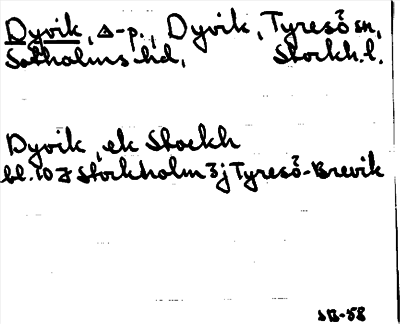 Dyvik, △-p., Dyvik, Tyresö sn,
Sotholms hd, Stockh.l.
Dyvik, ek Stockh
bl. 10 J Stockholm 3j Tyresö-Brevik
SB-58